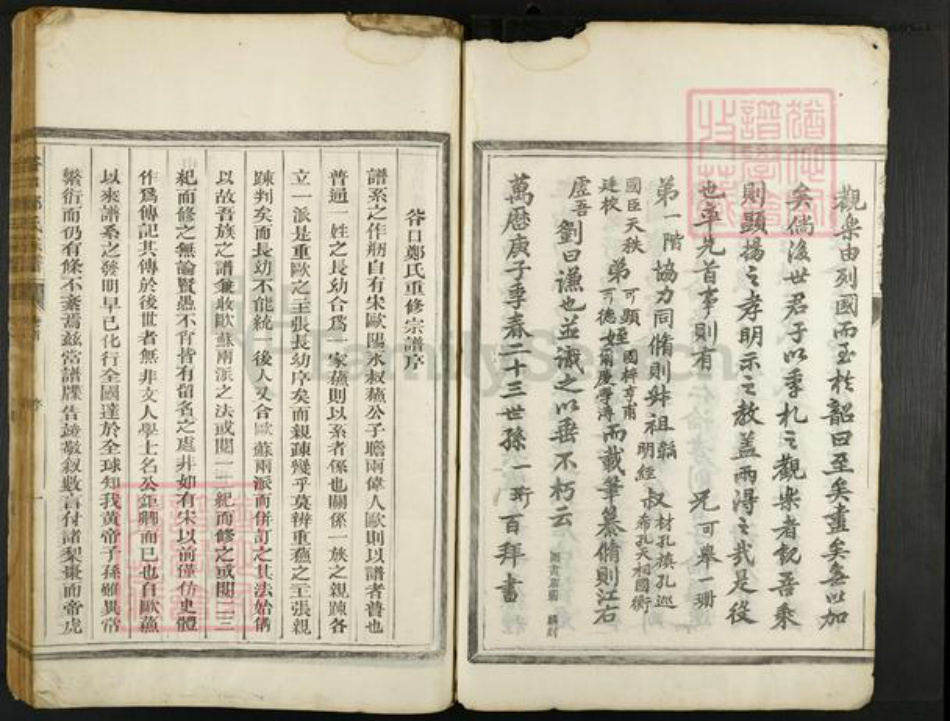 觀樂由列國而至於韶曰至矣盡矣無以加
矣倘後世君子以季札之觀樂者觀吾乘
則顯揚之孝明示之教蓋兩得之哉是役
也率先首事則有 兄可舉一珊
第一階協力同脩則姪祖 明經 叔 材孔旗孔巡 希孔天相國衡
國臣天秩 建校 弟 可顯 可德 姪 國桥亨甫 而載筆纂脩則江右
虛吾
劉曰謙也並識之以垂不朽云
萬曆庚子季春二十三世孫一珩百拜書
谷口鄭氏重修宗譜序
譜系之作刱自有宋歐陽永叔蘇公子瞻兩偉人歐則以譜者普也
普通一姓之長幼合爲一家蘇則以系者係也關係一族之親踈各
立一派是重歐之主張長幼序矣而親疎幾乎莫辨重蘇之主張親
踈判矣而長幼不能統一後人又合歐蘇兩派而併訂之其法始備
以故吾族之譜兼取歐蘇兩派之法或閱一二紀而修之或閱二三
紀而修之無論賢愚不肖皆有留名之處非如有宋以前僅仿史體
作爲傳記其傳於後世者無非文人學士名公鉅卿而已也自歐蘇
以來譜系之發明早已化行全國達於全球知我黃帝子孫雖異常
繁衍而仍有條不紊焉茲當譜牒告竣敬叙數言付諸梨棗而帝虎
FamilySearch